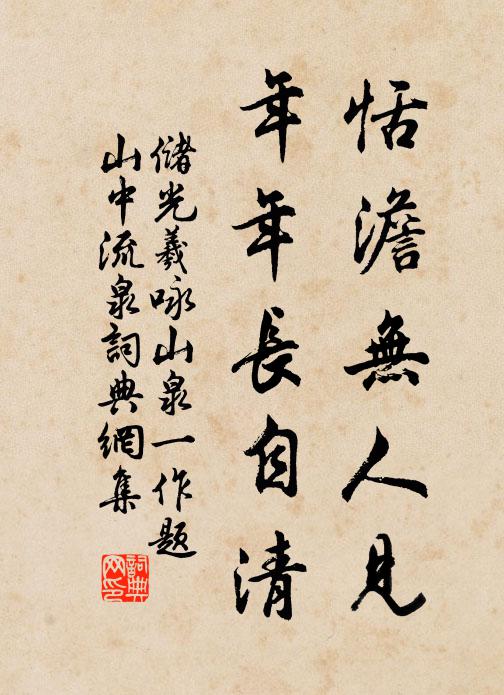 恬澹無人見
年年長自清
儲光羲咏山泉一作題
山中流泉詞典網集
詞典
网印